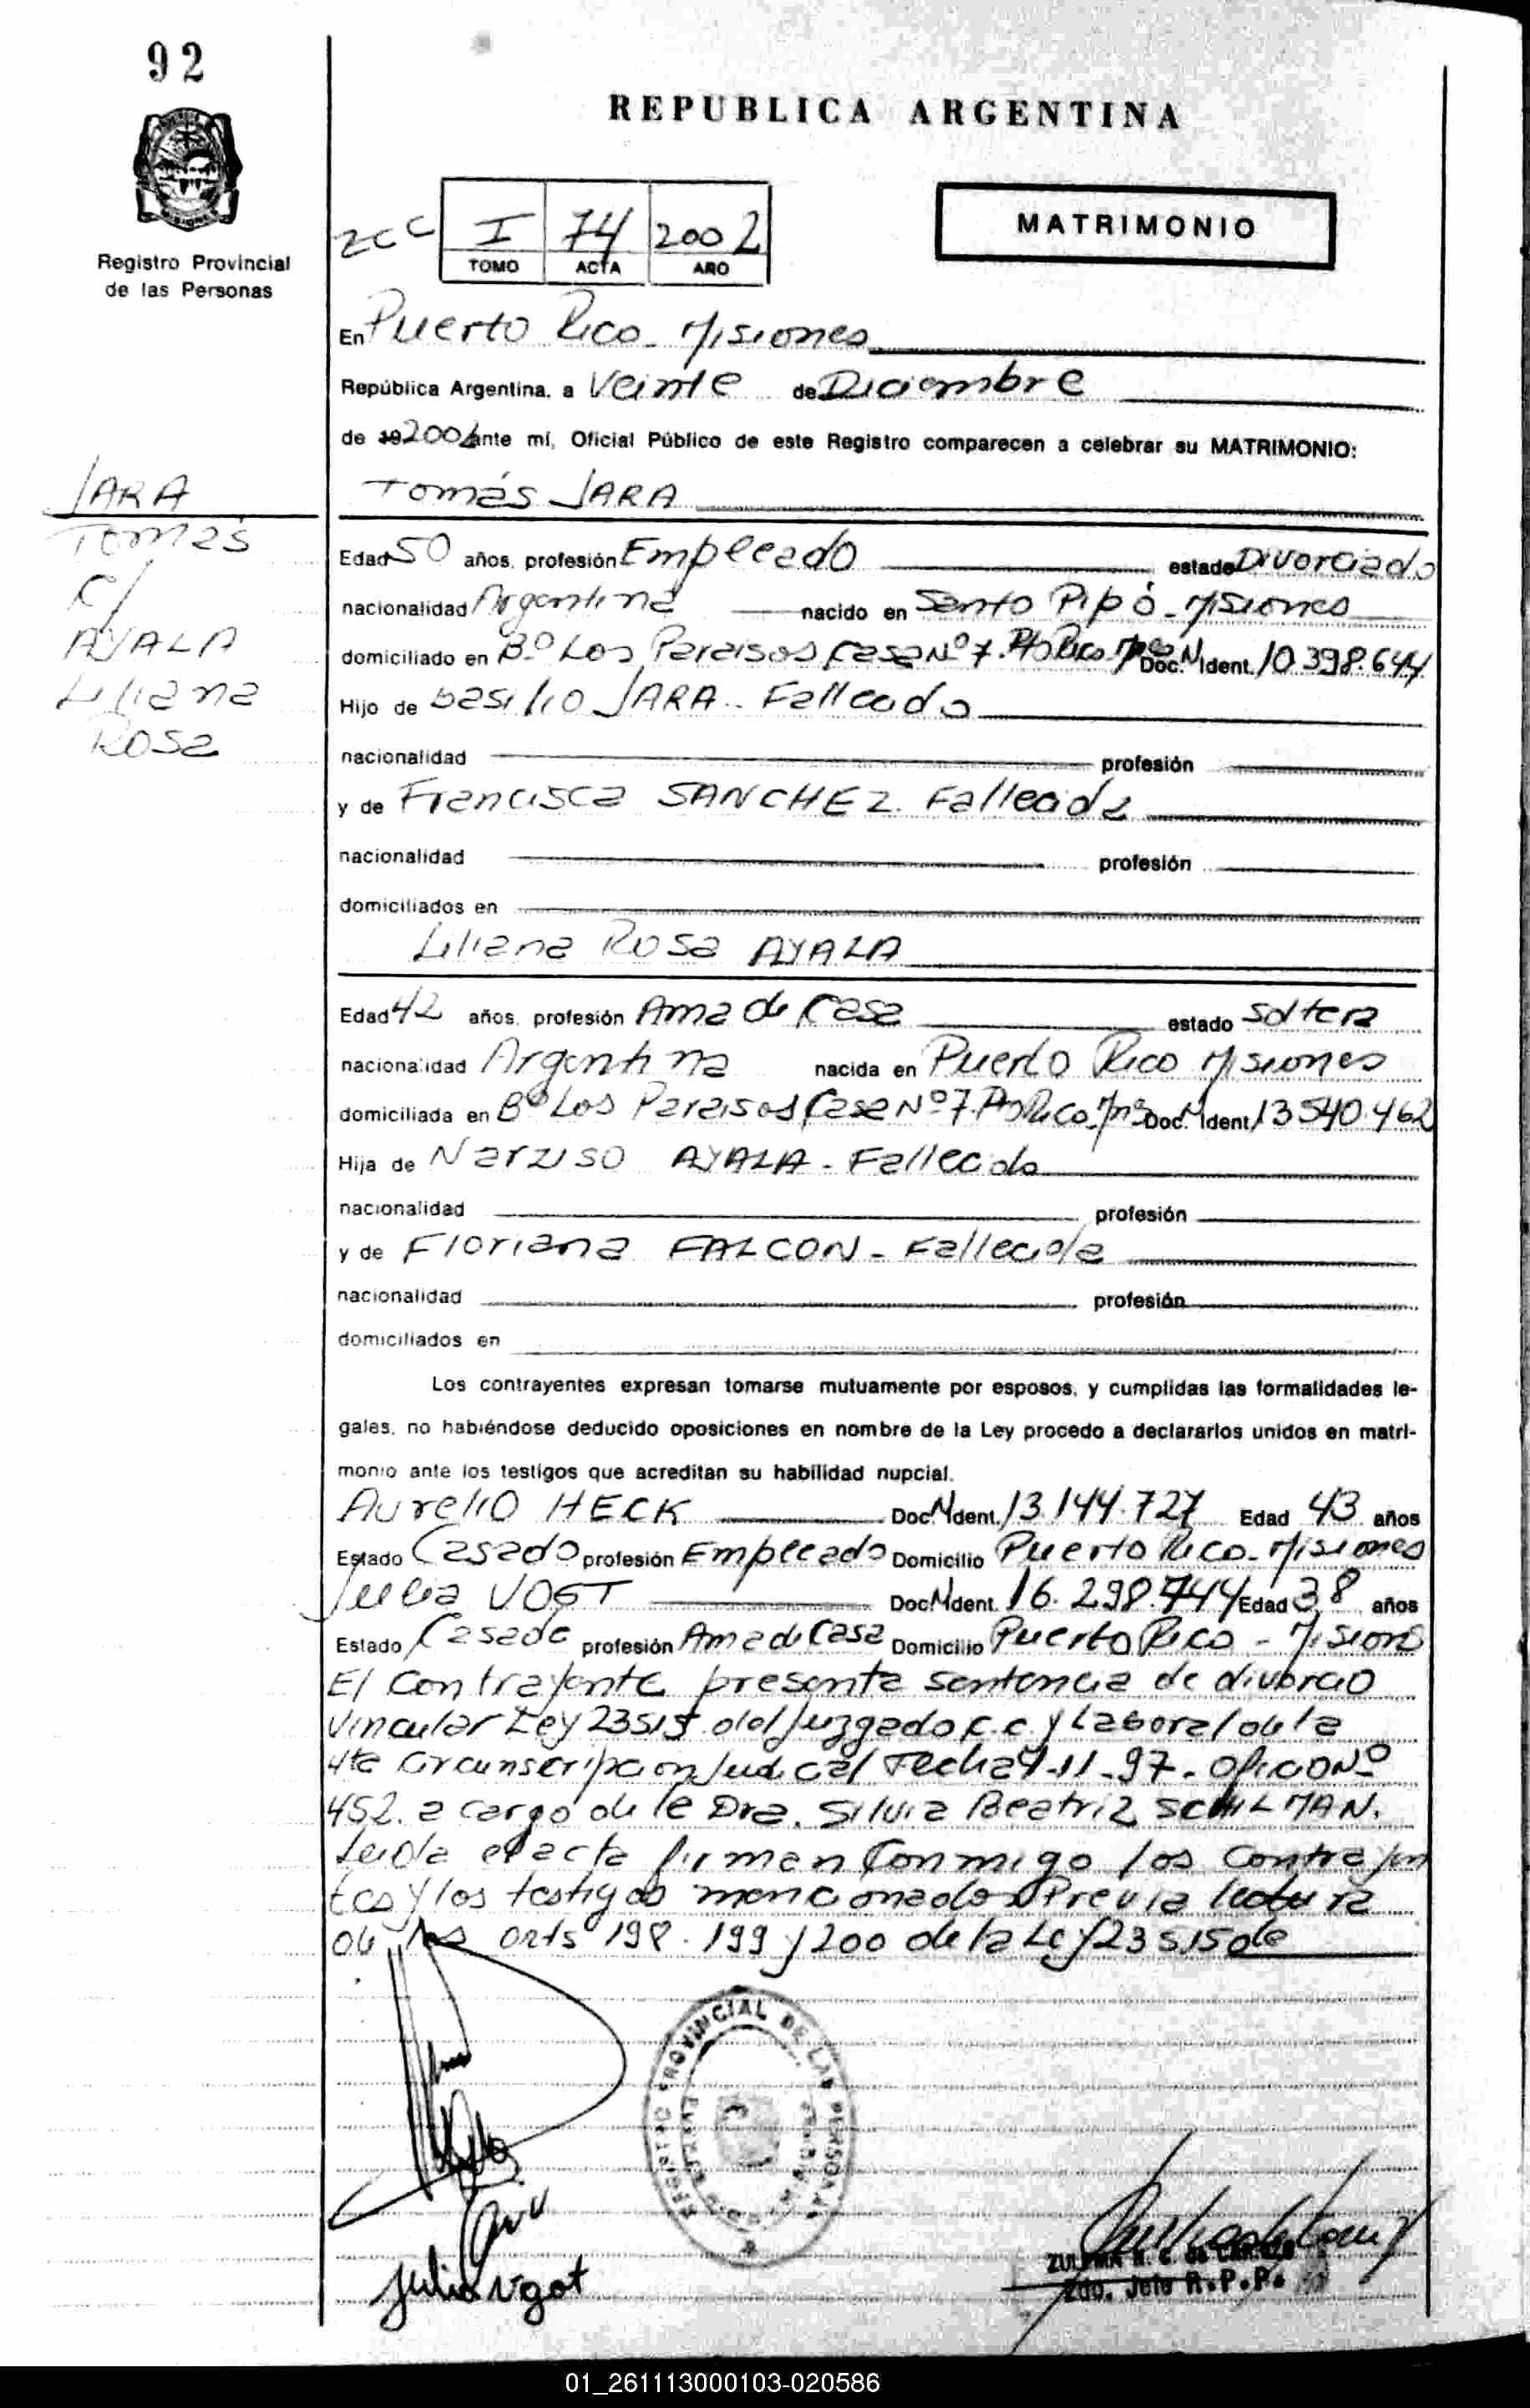 92
REPUBLICA ARGENTINA
Registro Provincial
de las Personas
I 74 2002
TOMO ACTA AÑO
MATRIMONIO
En Puerto Rico - Misiones
República Argentina, a Veinte de Diciembre
de 19 2002 ante mí, Oficial Público de este Registro comparecen a celebrar su MATRIMONIO:
JARA
Tomás
C/
AYALA
Liliana
Rosa
Tomás JARA
Edad 50 años, profesión Empleado estado Divorciado
nacionalidad Argentina nacido en Santo Pipó - Misiones
domiciliado en Bº Los Paraisos Casa Nº 7. Pto Rico. Mnes Doc. N Ident. 10.398.644
Hijo de Basilio JARA - Fallecido
nacionalidad profesión
y de Francisca SANCHEZ. Fallecida
nacionalidad profesión
domiciliados en
Liliana Rosa AYALA
Edad 42 años, profesión Ama de Casa estado Soltera
nacionalidad Argentina nacida en Puerto Rico Misiones
domiciliada en Bº Los Paraisos Casa Nº 7. Pto Rico. Mnes Doc. N Ident. 13540.462
Hija de Narziso AYALA - Fallecido
nacionalidad profesión
y de Floriana FALCON - Fallecida
nacionalidad profesión
domiciliados en
Los contrayentes expresan tomarse mutuamente por esposos, y cumplidas las formalidades le-
gales, no habiéndose deducido oposiciones en nombre de la Ley procedo a declararlos unidos en matri-
monio ante los testigos que acreditan su habilidad nupcial.
Aurelio HECK Doc. N Ident. 13.144.727 Edad 43 años
Estado Casado profesión Empleado Domicilio Puerto Rico - Misiones
Julia VOGT Doc. N Ident. 16.298.744 Edad 38 años
Estado Casada profesión Ama de Casa Domicilio Puerto Rico - Misiones
El Contrayente presenta sentencia de divorcio
Vincular Ley 23515 del Juzgado C.C. y Laboral de la
4ta Circunscripcion Judicial Fecha 4-11-97. Oficio Nº
452. a cargo de la Dra. Silvia Beatriz SCHILMAN.
Leida el acta firman Conmigo los Contrayen
tes y los testigos mencionados Previa lectura
de los arts 198. 199 y 200 de la Ley 23515 de
REGISTRO PROVINCIAL DE LAS PERSONAS
Julia Vogt
2do. Jefe R.P.P.
01_261113000103-020586